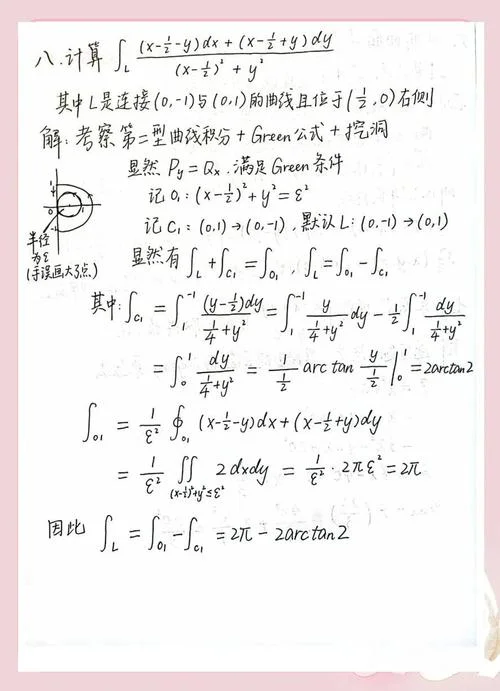 八.计算 ∫_L ((x-1/2-y)dx+(x-1/2+y)dy)/((x-1/2)²+y²)
其中L是连接(0,-1)与(0,1)的曲线且位于(1/2,0)右侧
解:考察第二型曲线积分+Green公式+挖洞
显然 Py=Qx.满足Green条件
记O₁:(x-1/2)²+y²=ε²
记C₁:(0,1)→(0,-1),默认L:(0,-1)→(0,1)
显然有∫_L+∫_C₁=∫_O₁,∫_L=∫_O₁-∫_C₁
1
0
1
-1
半径
为ε
(手误画大了点)
其中:∫_C₁=∫_1^-1 ((y-1/2)dy)/(1/4+y²)=∫_1^-1 y/(1/4+y²) dy-1/2∫_1^-1 dy/(1/4+y²)
=∫_0^1 dy/(1/4+y²)=1/(1/2) arctan y/(1/2)|_0^1=2arctan2
∫_O₁=1/ε² ∮_O₁ (x-1/2-y)dx+(x-1/2+y)dy
=1/ε² ∬_(x-1/2)²+y²≤ε² 2dxdy=1/ε²·2πε²=2π
因此 ∫_L=∫_O₁-∫_C₁=2π-2arctan2